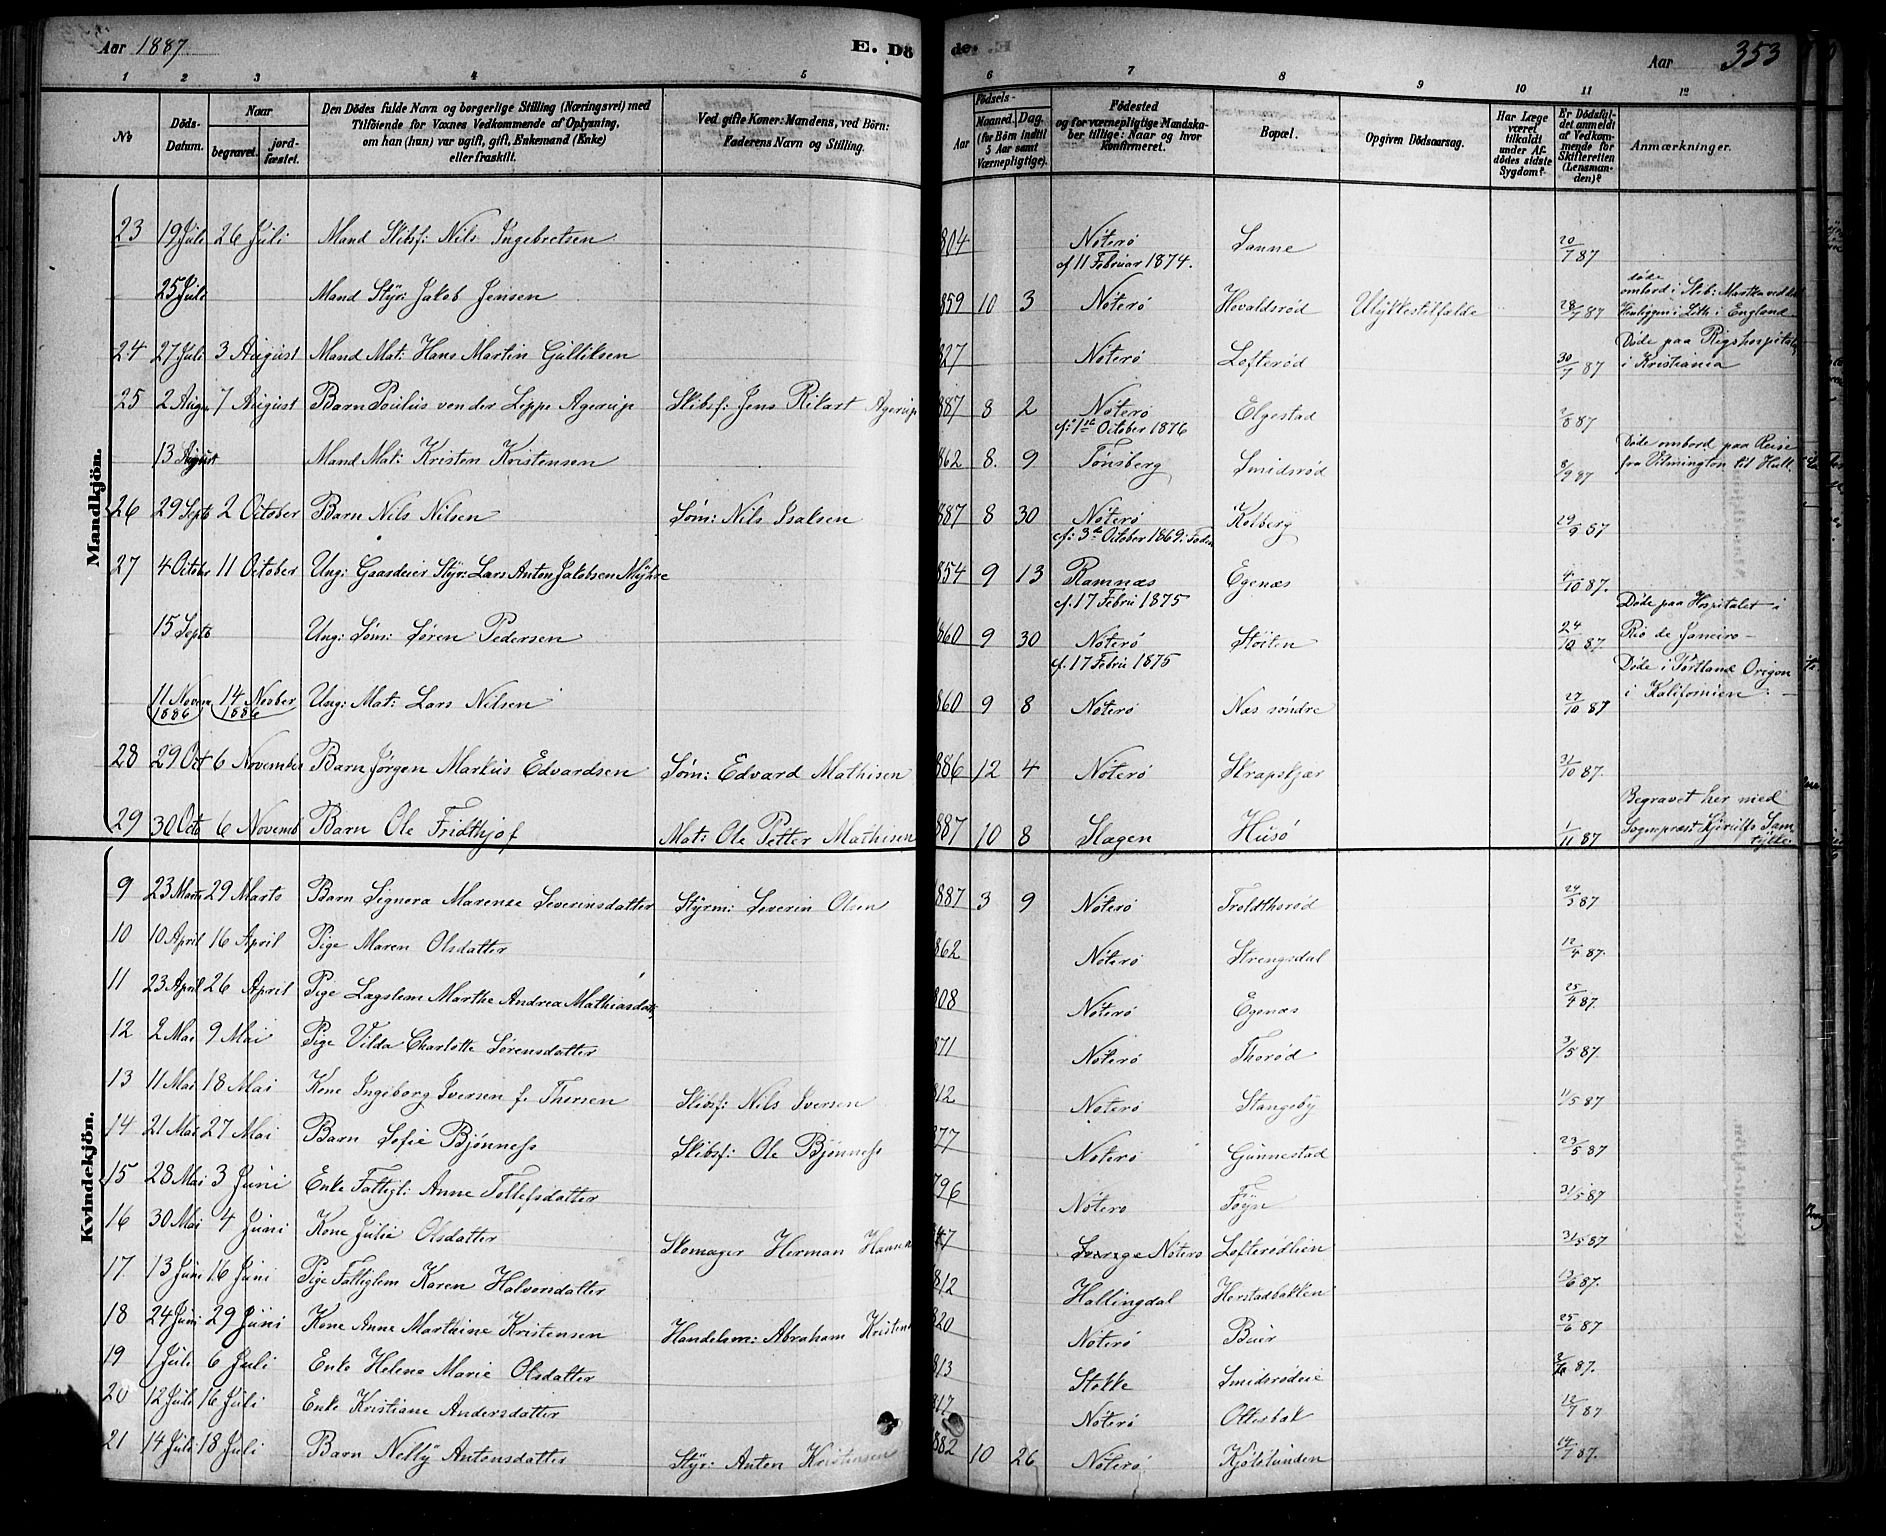 Aar 1887. E. Dö
de. Aar 353
1 2 3 4 5 6 7 8 9 10 11 12
No Döds-Datum. Naar begravet. jord-fæstet. Den Dödes fulde Navn og borgerlige Stilling (Næringsvei) med Tilföiende for Voxnes Vedkommende af Oplysning, om han (hun) var ugift, gift, Enkemand (Enke) eller fraskilt. Ved gifte Koner: Mandens, ved Börn: Faderens Navn og Stilling. Födsels- Aar Maaned. Dag. (for Börn indtil 5 Aar samt Værnepligtige). Födested og for værnepligtige Mandskaber tillige: Naar og hvor konfirmeret. Bopæl. Opgiven Dödsaarsag. Har Læge været tilkaldt under Afdödes sidste Sygdom? Er Dödsfaldet anmeldt af Vedkommende for Skifteretten (Lensmanden)? Anmærkninger.
Mandkjön.
23 19 Juli 26 Juli Mand Skibsf: Nils Ingebretsen 804 Nöterö Sanne 20/7 87
cf 11 Februar 1874.
25 Juli Mand Styr: Jakob Jensen 859 10 3 Nöterö Hovaldsröd Ulykkestilfælde 28/7 87 döde ombord i Skib: Martha ved
i Leth i England
24 27 Juli 3 August Mand Mat: Hans Martin Gulliksen 827 Nöterö Lofteröd 30/7 87 Döde paa Rigshospitalet
i Kristiania
25 2 Augu 7 August Barn Poulus von der Lippe Agerup Skibsf: Jens Rikart Agerup 887 8 2 Nöterö Elgestad 2/8 87
cf: 1ste October 1876
13 August Mand Mat: Kristen Kristensen 862 8. 9 Tönsberg Smidsröd 8/9 87 Döde ombord paa Reise
fra Vilmington til Hull
26 29 Septb 2 October Barn Nils Nilsen Söm: Nils Isaksen 887 8 30 Nöterö Kolberg 29/9 87
cf: 3de October 1869:
27 4 October 11 October Ung: Gaardeier Styr: Lars Anton Jakobsen Myhre 854 9 13 Ramnæs Egenæs 4/10 87.
cf. 17 Febru 1875
15 Septb Ung: Söm: Sören Pedersen 860 9 30 Nöterö Stöiten 24/10 87. Döde paa Hospitalet i
Rio de Janeiro
cf. 17 Febru 1875
11 Novem 1886 14 Novber 1886 Ung: Mat: Lars Nilsen 860 9 8 Nöterö Næs söndre 27/10 87 Döde i Portland Origon
i Kalifornien
28 29 Oct 6 November Barn Jörgen Markus Edvardsen Söm: Edvard Mathisen 886 12 4 Nöterö Skrapskjær 31/10 87.
29 30 Octb 6 Novemb Barn Ole Fridthjof Mat: Ole Petter Mathisen 887 10 8 Slagen Husö 1/11 87 Begravet her med
Sognepræst Kjerulfs Sam
tykke.
Kvindekjön.
9 23 Marts 29 Marts Barn Signera Marense Severinsdatter Styrm: Severin Olsen 1887 3 9 Nöterö Troldthoröd 24/3 87
10 10 April 16 April Pige Maren Olsdatter 862 Nöterö Strengsdal 12/4 87.
11 23 April 26 April Pige Lægslem Marthe Andrea Mathiasdatt 808 Nöterö Egenæs 25/4 87.
12 2 Mai 9 Mai Pige Vilda Charlotte Sörensdatter 871 Nöterö Thoröd 3/5 87.
13 11 Mai 18 Mai Kone Ingeborg Iversen f. Thorsen Skibsf: Nils Iversen 812 Nöterö Stangeby 11/5 87
14 21 Mai 27 Mai Barn Sofie Bjönness Skibsf: Ole Bjönness 877 Nöterö Gunnestad 23/5 87
15 28 Mai 3 Juni Enke Fattigl: Anne Tollefsdatter 796 Nöterö Föyn 31/5 87
16 30 Mai 4 Juni Kone Julie Olsdatter Skomager Herman 847 Nöterö Lofterödlien 31/5 87
17. 13 Juni 16 Juni Pige Fattiglem Karen Halvorsdatter 812 Hallingdal Herstadbakken 13/6 87.
18 24 Juni 29 Juni Kone Anne Marthine Kristensen Handelsm: Abraham Kristens 820 Nöterö Buer 25/6 87
19 1 Juli 6 Juli Enke Helene Marie Olsdatter 813 Stokke Smidsrödeie 87.
20 12 Juli 16 Juli Enke Kristiane Andersdatter 817 Nöterö Ottesbak 12/7 87
21 14 Juli 18 Juli Barn Nelly Antonsdatter Styr: Anton Kristensen 882 10 26 Nöterö Kjölelunden 14/7 87.